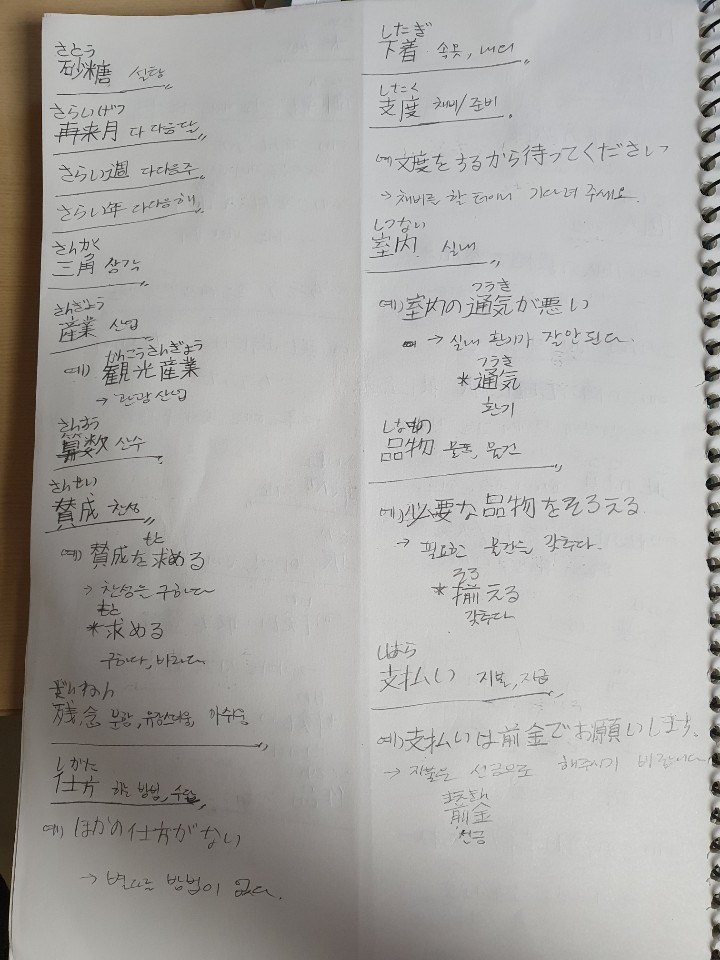 さとう
砂糖 설탕
さらいげつ
再来月 다다음달
さらい週 다다음주
さらい年 다다음해
さんかく
三角 삼각
さんぎょう
産業 산업
예) かんこうさんぎょう
観光産業
→ 관광산업
さんすう
算数 산수
さんせい
賛成 찬성
예) 賛成を求める
もと
→ 찬성을 구하다
もと
*求める
구하다, 바라다.
ざんねん
残念 분함, 유감스러움, 아쉬움
しかた
仕方 하는 방법, 수단
예) ほかの仕方がない
→ 별다른 방법이 없다.
したぎ
下着 속옷, 내의
したく
支度 채비/준비
예) 支度をするから待ってください
→ 채비를 할 터이니 기다려 주세요.
しつない
室内 실내
つうき
예) 室内の通気が悪い
→ 실내 환기가 잘 안된다.
つうき
*通気
환기
しなもの
品物 물품, 물건
예) 必要な品物をそろえる
→ 필요한 물건을 갖추다.
そろ
*揃える
갖추다.
しはら
支払い 지불, 지급
예) 支払いは前金でお願いします。
→ 지불은 선금으로 해주시기 바랍니다.
まえきん
前金
선금